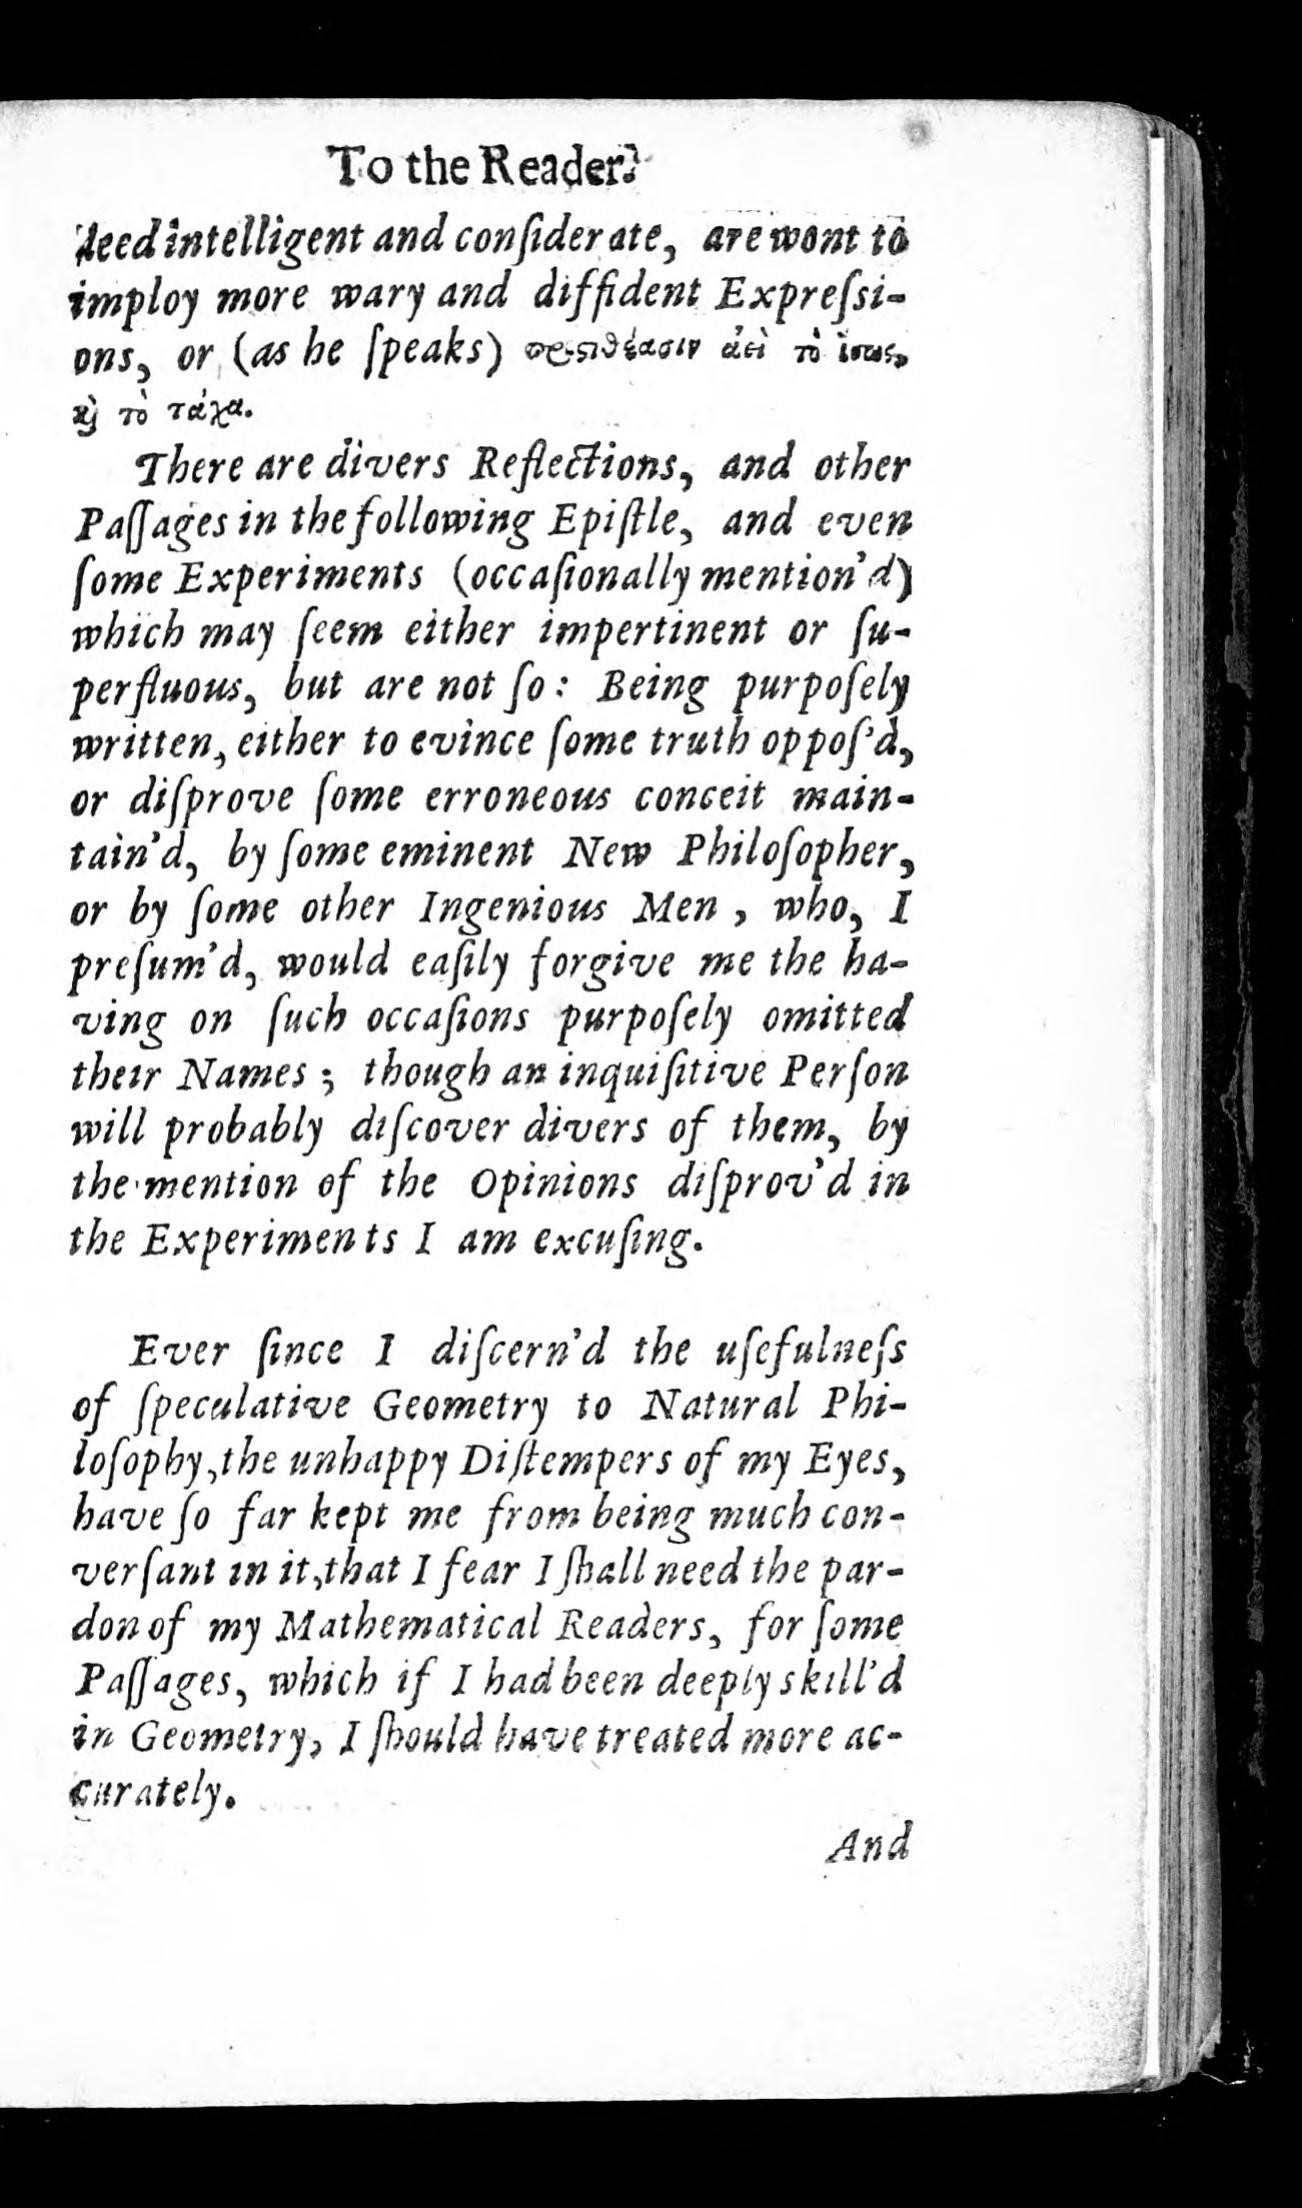 To the Reader.
deed intelligent and conſiderate, are wont to
imploy more wary and diffident Expreſsi-
ons, or (as he ſpeaks) προστιθέασιν ἀεὶ τὸ ἴσως,
ϗ τὸ τάχα.
There are divers Reflections, and other
Paſſages in the following Epiſtle, and even
ſome Experiments (occaſionally mention'd)
which may ſeem either impertinent or ſu-
perfluous, but are not ſo: Being purpoſely
written, either to evince ſome truth oppoſ'd,
or diſprove ſome erroneous conceit main-
tain'd, by ſome eminent New Philoſopher,
or by ſome other Ingenious Men, who, I
preſum'd, would eaſily forgive me the ha-
ving on ſuch occaſions purpoſely omitted
their Names; though an inquiſitive Perſon
will probably diſcover divers of them, by
the mention of the Opinions diſprov'd in
the Experiments I am excuſing.
Ever ſince I diſcern'd the uſefulneſs
of ſpeculative Geometry to Natural Phi-
loſophy, the unhappy Diſtempers of my Eyes,
have ſo far kept me from being much con-
verſant in it, that I fear I ſhall need the par-
don of my Mathematical Readers, for ſome
Paſſages, which if I had been deeply skill'd
in Geometry, I ſhould have treated more ac-
curately.
And